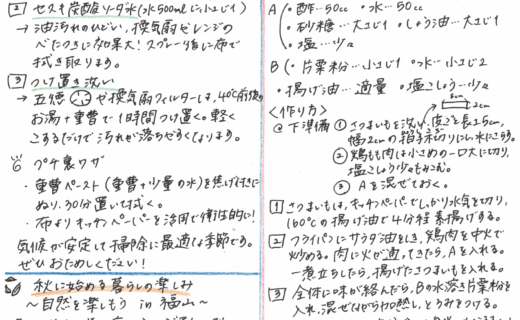 2 セスキ炭酸ソーダ水(水500mlに小さじ1)
→油汚れのひどい、換気扇やレンジの
べたつきに効果大!スプレー後に布で
拭き取ります。
3 つけ置き洗い
→五徳や換気扇フィルターは、40℃前後の
お湯+重曹で1時間つけ置く。軽く
こするだけで汚れが落ちやすくなります。
プチ裏ワザ
・重曹ペースト(重曹+少量の水)を焦げ付きに
ぬり、30分置いて拭く。
・布よりキッチンペーパーを活用で衛生的に!
気候が安定して掃除に最適な季節です。
ぜひおためしください!
秋に始める暮らしの楽しみ
~自然を楽しもう in 福山~
A(・酢…50cc ・水…50cc
・砂糖…大さじ1 ・しょう油…大さじ1
・塩…少々
B(・片栗粉…小さじ1 ・水…小さじ2
・揚げ油…適量 ・塩こしょう…少々
<作り方>
8cm
2cm
@下準備 ①さつまいもを洗い、皮ごと長さ5cm、
幅2cmの拍子木切りにし水にさらす。
②鶏もも肉は小さめの一口大に切り、
塩こしょう少々もみこむ。
③Aを混ぜておく。
1 さつまいもは、キッチンペーパーでしっかり水気を切り、
160℃の揚げ油で4分程素揚げする。
2 フライパンにサラダ油をしき、鶏肉を中火で
炒める。肉に火が通ってきたら、Aを入れる。
一煮立ちしたら、揚げたさつまいもを入れる。
3 全体に味が絡んだら、Bの水溶き片栗粉を
入れ、混ぜながら加熱し、とろみをつける。